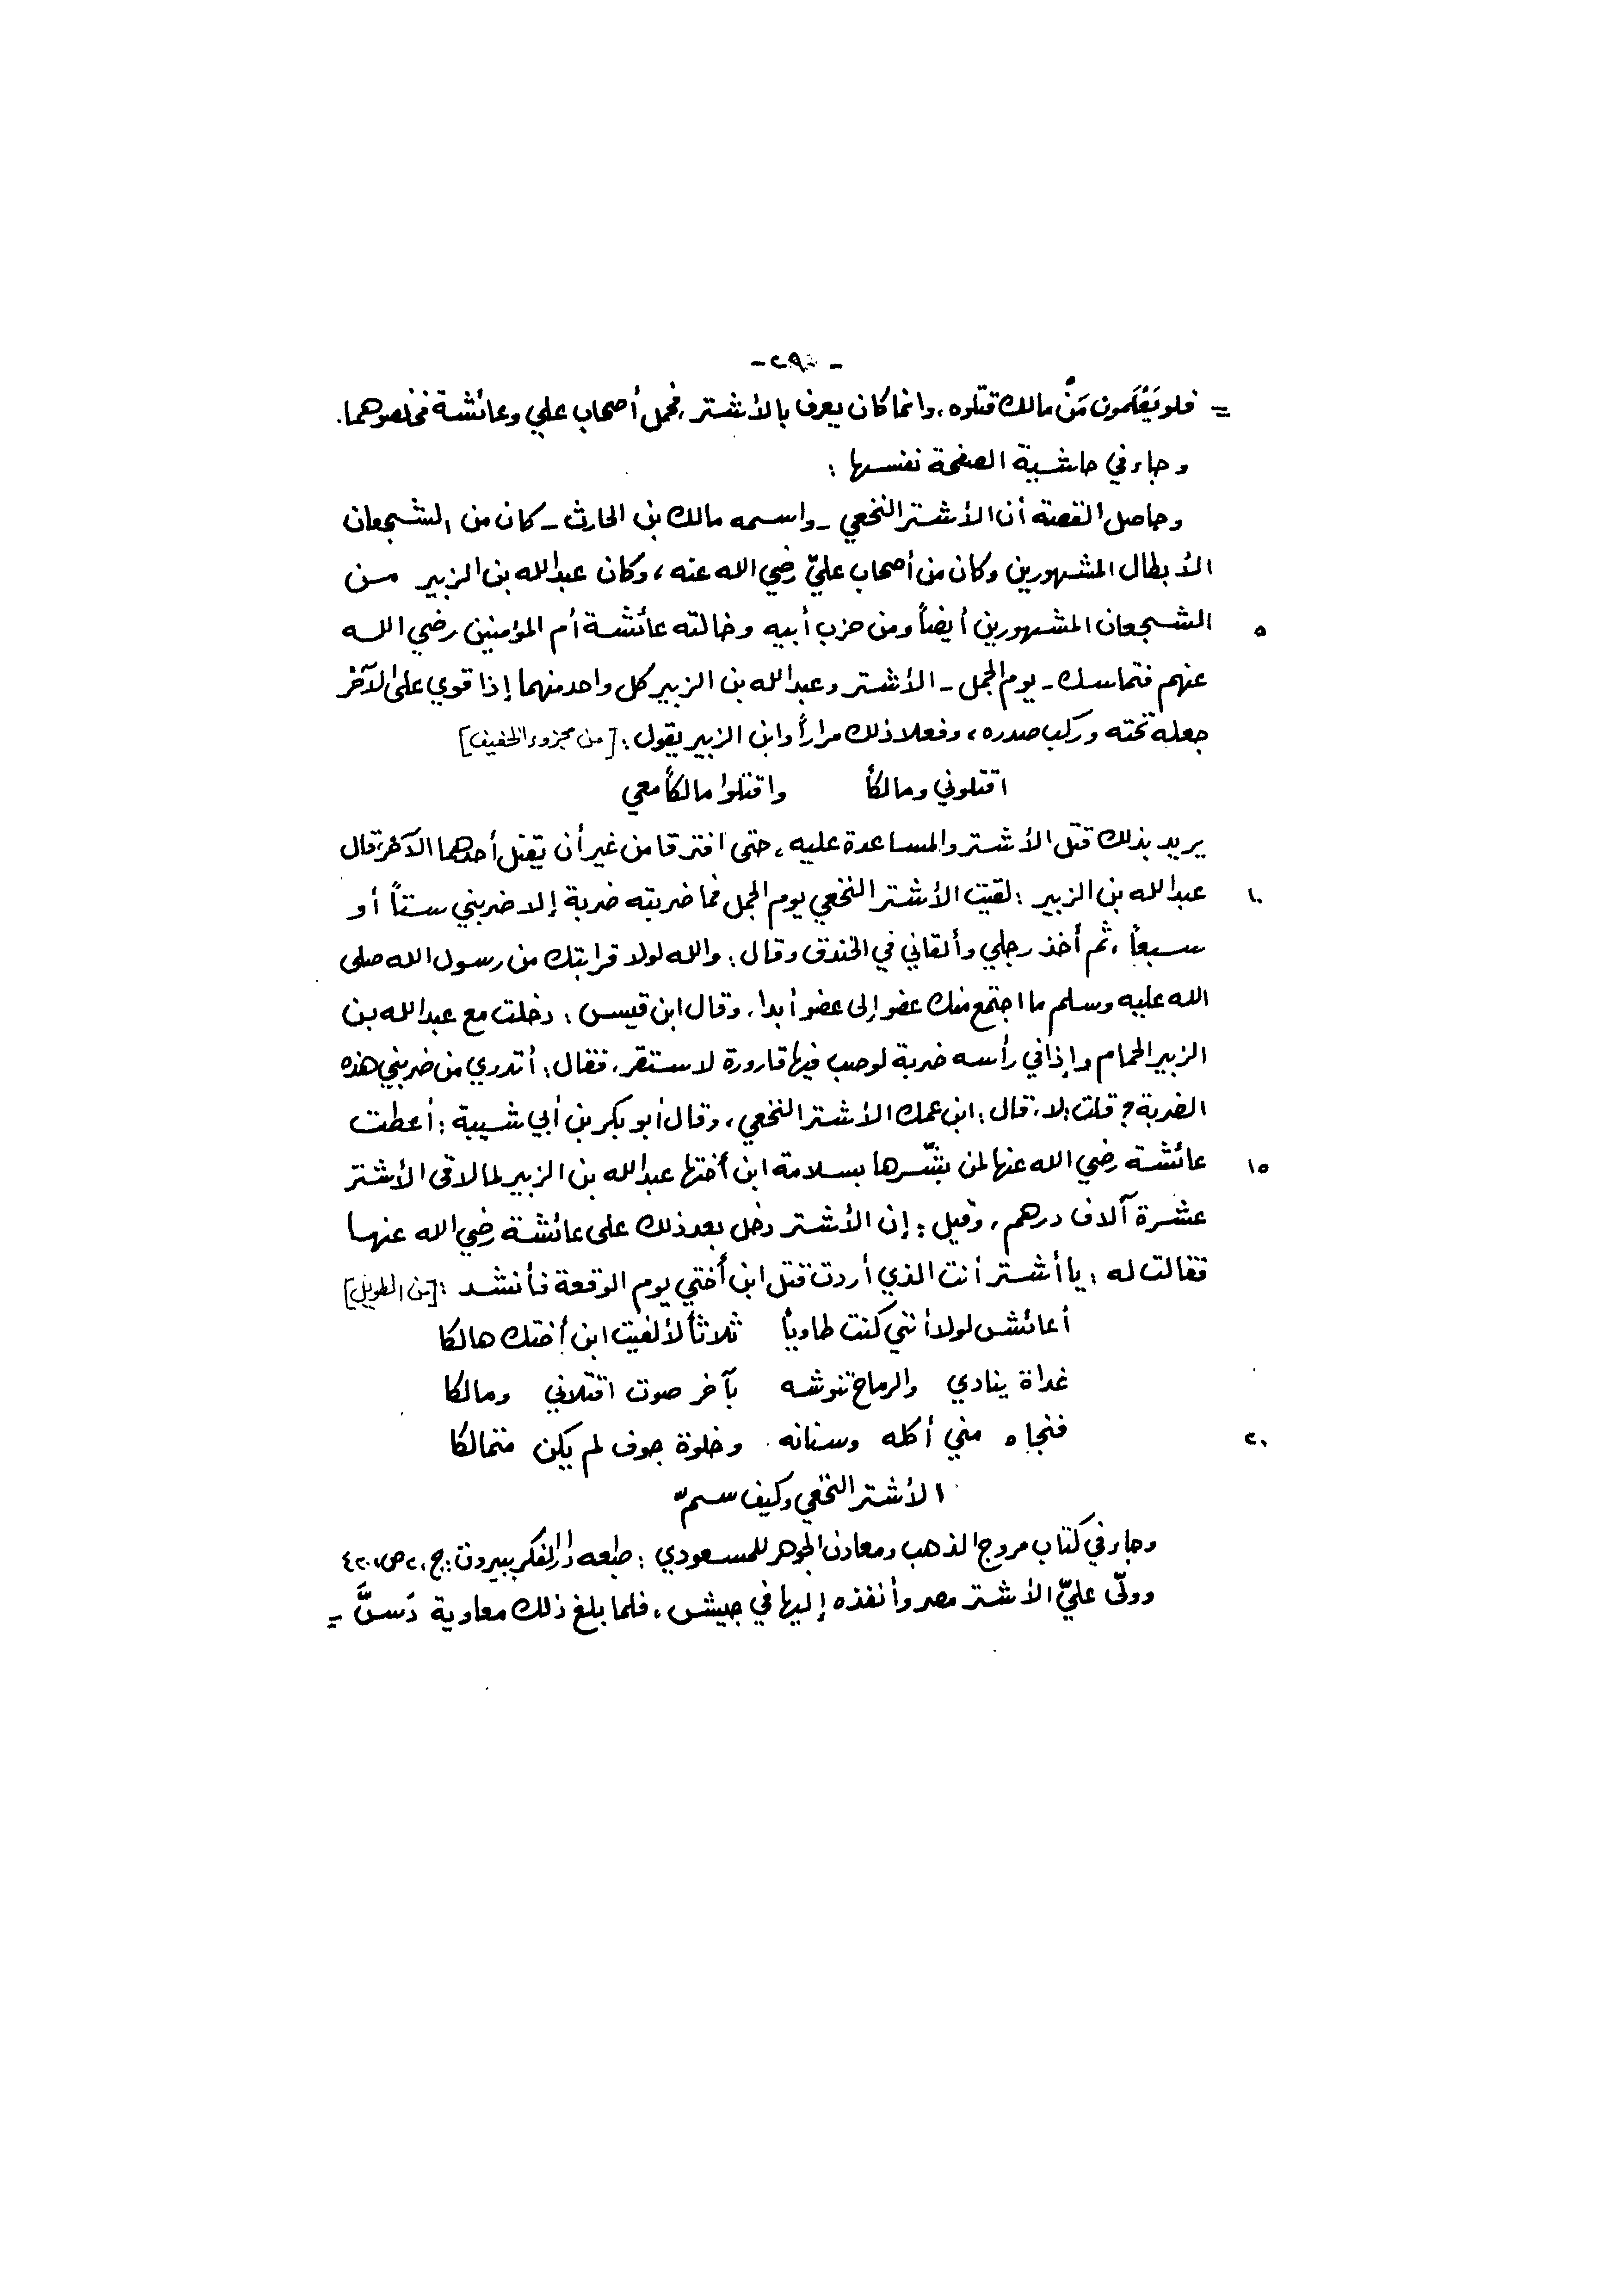 - ٢٩٠ -
= فلو يَعْلَمون مَنْ مالك قتلوه، وانما كان يعرف بالأشتر، فحمل أصحاب علي وعائشة فخلصوهما.
وجاء في حاشية الصفحة نفسها :
وحاصل القصة أن الأشتر النخعي - واسمه مالك بن الحارث - كان من الشجعان
الأبطال المشهورين وكان من أصحاب عليّ رضي الله عنه، وكان عبدالله بن الزبير من
٥ الشجعان المشهورين أيضاً ومن حزب أبيه وخالته عائشة أم المؤمنين رضي الله
عنهم فتماسك - يوم الجمل - الأشتر وعبدالله بن الزبير كل واحد منهما إذا قوي على الآخر
جعله تحته وركب صدره، وفعلا ذلك مراراً وابن الزبير يقول: [من مجزوء الخفيف]
اقتلوني ومالكاً واقتلوا مالكاً معي
يريد بذلك قتل الأشتر والمساعدة عليه، حتى افترقا من غير أن يقتل أحدهما الآخر، قال
١٠ عبدالله بن الزبير : لقيت الأشتر النخعي يوم الجمل فما ضربته ضربة إلا ضربني ستاً أو
سبعاً، ثم أخذ رجلي وألقاني في الخندق وقال: والله لولا قرابتك من رسول الله صلى
الله عليه وسلم ما اجتمع منك عضو إلى عضو أبدا، وقال ابن قيس: دخلت مع عبدالله بن
الزبير الحمام وإذا في رأسه ضربة لو صب فيها قارورة لاستقر، فقال: أتدري من ضربني هذه
الضربة؟ قلت: لا، قال: ابن عمك الأشتر النخعي، وقال أبو بكر بن أبي شيبة: أعطت
١٥ عائشة رضي الله عنها لمن بشّرها بسلامة ابن أختها عبدالله بن الزبير لما لاقى الأشتر
عشرة آلاف درهم، وقيل: إن الأشتر دخل بعد ذلك على عائشة رضي الله عنها
فقالت له: يا أشتر أنت الذي أردت قتل ابن أختي يوم الوقعة فأنشد: [من الطويل]
أعائش لولا أنني كنت طاوياً ثلاثاً لألفيت ابن أختك هالكا
غداة ينادي والرماح تنوشه بآخر صوت اقتلاني ومالكا
٢٠ فنجاه مني أكله وسنانه وخلوة جوف لم يكن متمالكا
الأشتر النخعي وكيف سمّ
وجاء في كتاب مروج الذهب ومعادن الجوهر للمسعودي : طبعه دار الفكر ببيروت: ج،٢ ص،٤٢٠
وولّى عليّ الأشتر مصر وأنفذه إليها في جيش، فلما بلغ ذلك معاوية دَسَّ =